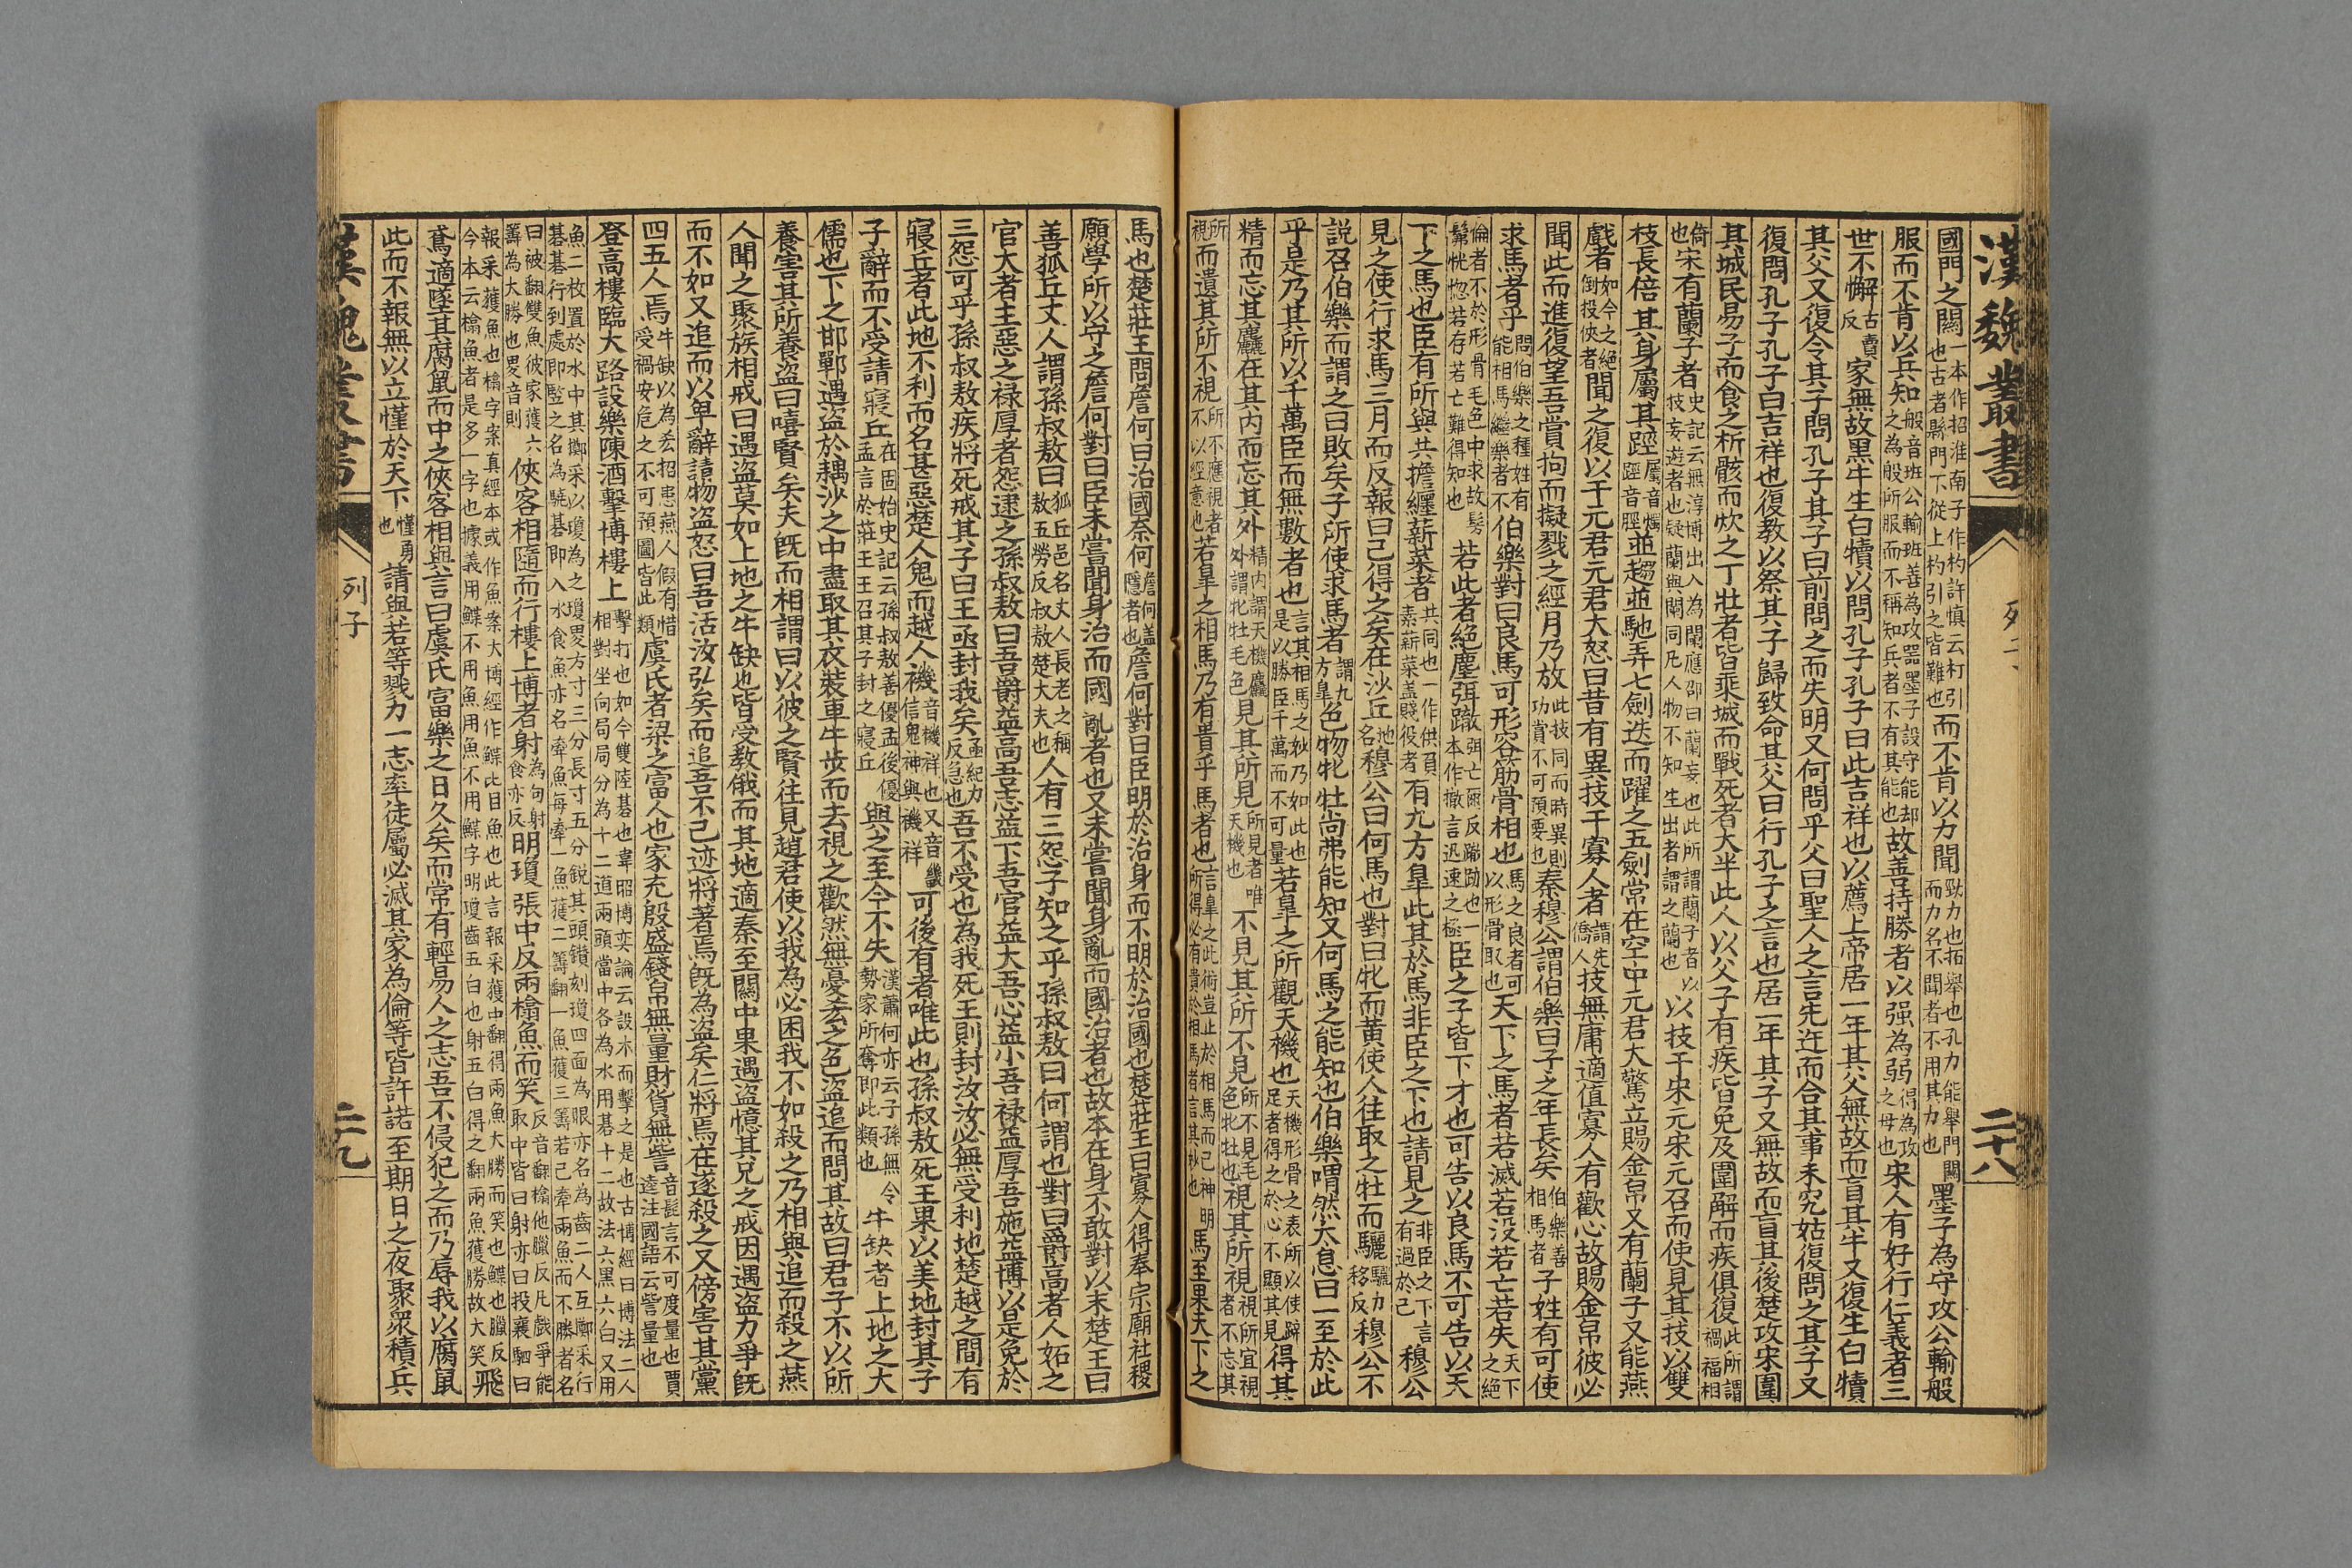 漢魏叢書
列子
二十八
國門之關一本作招淮南子作杓許慎云杓引也古者縣門下從上杓引之皆難也而不肯以力聞勁力也拓舉也孔力能舉門關而力名不聞者不用其力也墨子為守攻公輸般
服而不肯以兵知般音班公輸班善為攻器墨子設守能却之為般所服而不稱知兵者不有其能也故善持勝者以强為弱得為攻之母也宋人有好行仁義者三
世不懈古賣反家無故黑牛生白犢以問孔子孔子曰此吉祥也以薦上帝居一年其父無故而盲其牛又復生白犢
其父又復令其子問孔子其子曰前問之而失明又何問乎父曰聖人之言先迕而合其事未究姑復問之其子又
復問孔子孔子曰吉祥也復教以祭其子歸致命其父曰行孔子之言也居一年其子又無故而盲其後楚攻宋圍
其城民易子而食之析骸而炊之丁壯者皆乘城而戰死者大半此人以父子有疾皆免及圍解而疾俱復此所謂禍福相
倚也宋有蘭子者史記云無淳博出入為闌應邵曰蘭妄也此所謂蘭子者以技妄遊者也疑蘭與闌同凡人物不知生出者謂之蘭也以技干宋元宋元召而使見其技以雙
枝長倍其身屬其踁屬音燭踁音脛並趨並馳弄七劍迭而躍之五劍常在空中元君大驚立賜金帛又有蘭子又能燕
戲者如今之絕倒投俠者聞之復以干元君元君大怒曰昔有異技干寡人者謂先僑人技無庸適值寡人有歡心故賜金帛彼必
聞此而進復望吾賞拘而擬戮之經月乃放此技同而時異則功賞不可預要也秦穆公謂伯樂曰子之年長矣伯樂善相馬者子姓有可使
求馬者乎問伯樂之種姓有能相馬繼樂者不伯樂對曰良馬可形容筋骨相也馬之良者可以形骨取也天下之馬者若滅若没若亡若失天下之絕
倫者不於形骨毛色中求故髣髴恍惚若存若亡難得知也若此者絕塵弭𨅊弭亡爾反𨅊跡也一本作撤言迅速之極臣之子皆下才也可告以良馬不可告以天
下之馬也臣有所與共擔纏薪菜者共同也一作供負索薪菜盖賤役者有九方皐此其於馬非臣之下也請見之非臣之下言有過於己穆公
見之使行求馬三月而反報曰已得之矣在沙丘地名穆公曰何馬也對曰牝而黃使人往取之牡而驪驪力移反穆公不
説召伯樂而謂之曰敗矣子所使求馬者謂九方皐色物牝牡尚弗能知又何馬之能知也伯樂喟然太息曰一至於此
乎是乃其所以千萬臣而無數者也言其相馬之妙乃如此也是以勝臣千萬而不可量若皐之所觀天機也天機形骨之表所以使蹄足者得之於心不顯其見得其
精而忘其麤在其內而忘其外精內謂天機麤外謂牝牡毛色見其所見所見者唯天機也不見其所不見所不見毛色牝牡也視其所視視所宜視者不忘其
所視而遺其所不視所不應視者不以經意也若皐之相馬乃有貴乎馬者也言皐之此術豈止於相馬而已神明所得必有貴於相馬者言其妙也馬至果天下之
馬也楚莊王問詹何曰治國奈何詹何盖隱者也詹何對曰臣明於治身而不明於治國也楚莊王曰寡人得奉宗廟社稷
願學所以守之詹何對曰臣未嘗聞身治而國亂者也又未嘗聞身亂而國治者也故本在身不敢對以末楚王曰
善狐丘丈人謂孫叔敖曰狐丘邑名丈人長老之稱敖五勞反叔敖楚大夫也人有三怨子知之乎孫叔敖曰何謂也對曰爵高者人妬之
官大者主惡之禄厚者怨逮之孫叔敖曰吾爵益高吾志益下吾官益大吾心益小吾禄益厚吾施益博以是免於
三怨可乎孫叔敖疾將死戒其子曰王亟封我矣亟紀力反急也吾不受也為我死王則封汝汝必無受利地楚越之間有
寢丘者此地不利而名甚惡楚人鬼而越人禨音機祥也又音畿信鬼神與禨祥可後有者唯此也孫叔敖死王果以美地封其子
子辭而不受請寢丘在固始史記云孫叔敖善優孟後優孟言於莊王王召其子封之寢丘與之至今不失漢蕭何亦云子孫無令勢家所奪即此類也牛缺者上地之大
儒也下之邯鄲遇盜於耦沙之中盡取其衣裝車牛步而去視之歡然無憂吝之色盜追而問其故曰君子不以所
養害其所養盜曰嘻賢矣夫既而相謂曰以彼之賢往見趙君使以我為必困我不如殺之乃相與追而殺之燕
人聞之聚族相戒曰遇盜莫如上地之牛缺也皆受教俄而其弟適秦至關中果遇盜憶其兄之戒因遇盜力爭既
而不如又追而以卑辭請物盜怒曰吾活汝弘矣而追吾不已迹將著焉既為盜矣仁將焉在遂殺之又傍害其黨
四五人焉牛缺以為吝招患燕人假有惜受禍安危之不可預圖皆此類虞氏者梁之富人也家充殷盛錢帛無量財貨無訾音髭言不可度量也賈逵注國語云訾量也
登高樓臨大路設樂陳酒擊博樓上擊打也如今雙陸棊也韋昭博奕論云設木而擊之是也古博經曰博法二人相對坐向局局分為十二道兩頭當中各為水用棊十二故法六黑六白又用
魚二枚置於水中其擲采以瓊為之瓊畟方寸三分長寸五分銳其頭鑽刻瓊四面為眼亦名為齒二人互擲采行棊棊行到處即豎之名為驍棊即入水食魚亦名牽魚每牽一魚獲二籌翻一魚獲三籌若已牽兩魚而不勝者名
曰被翻雙魚彼家獲六籌為大勝也畟音則俠客相隨而行樓上博者射為句射食亦反明瓊張中反兩㩉魚而笑反音翻㩉他臘反凡戲爭能取中皆曰射亦曰投裴駰曰
報采獲魚也㩉字案真經本或作魚案大博經作鰈比目魚也此言報采獲中翻得兩魚大勝而笑也鰈也臘反今本云㩉魚者是多一字也據義用鰈不用魚用魚不用鰈字明瓊齒五白也射五白得之翻兩魚獲勝故大笑飛
鳶適墜其腐鼠而中之俠客相與言曰虞氏富樂之日久矣而常有輕易人之志吾不侵犯之而乃辱我以腐鼠
此而不報無以立慬於天下慬勇也請與若等戮力一志率徒屬必滅其家為倫等皆許諾至期日之夜聚衆積兵
漢魏叢書
列子
二十九